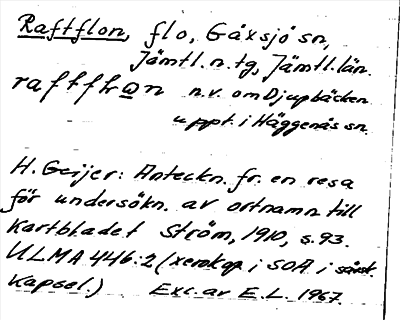 Raftflon, flo, Gåxsjö sn,
Jämtl. n. tg, Jämtl. län.
n.v. om Djupbäcken
uppt. i Häggenås sn.
H. Geijer: Anteckn. fr. en resa
för undersökn. av ortnamn till
Kartbladet Ström, 1910, s. 93.
ULMA 446:2 (xerokop. i SOA i särsk.
Kapsel.) Exc. av E.L. 1967.